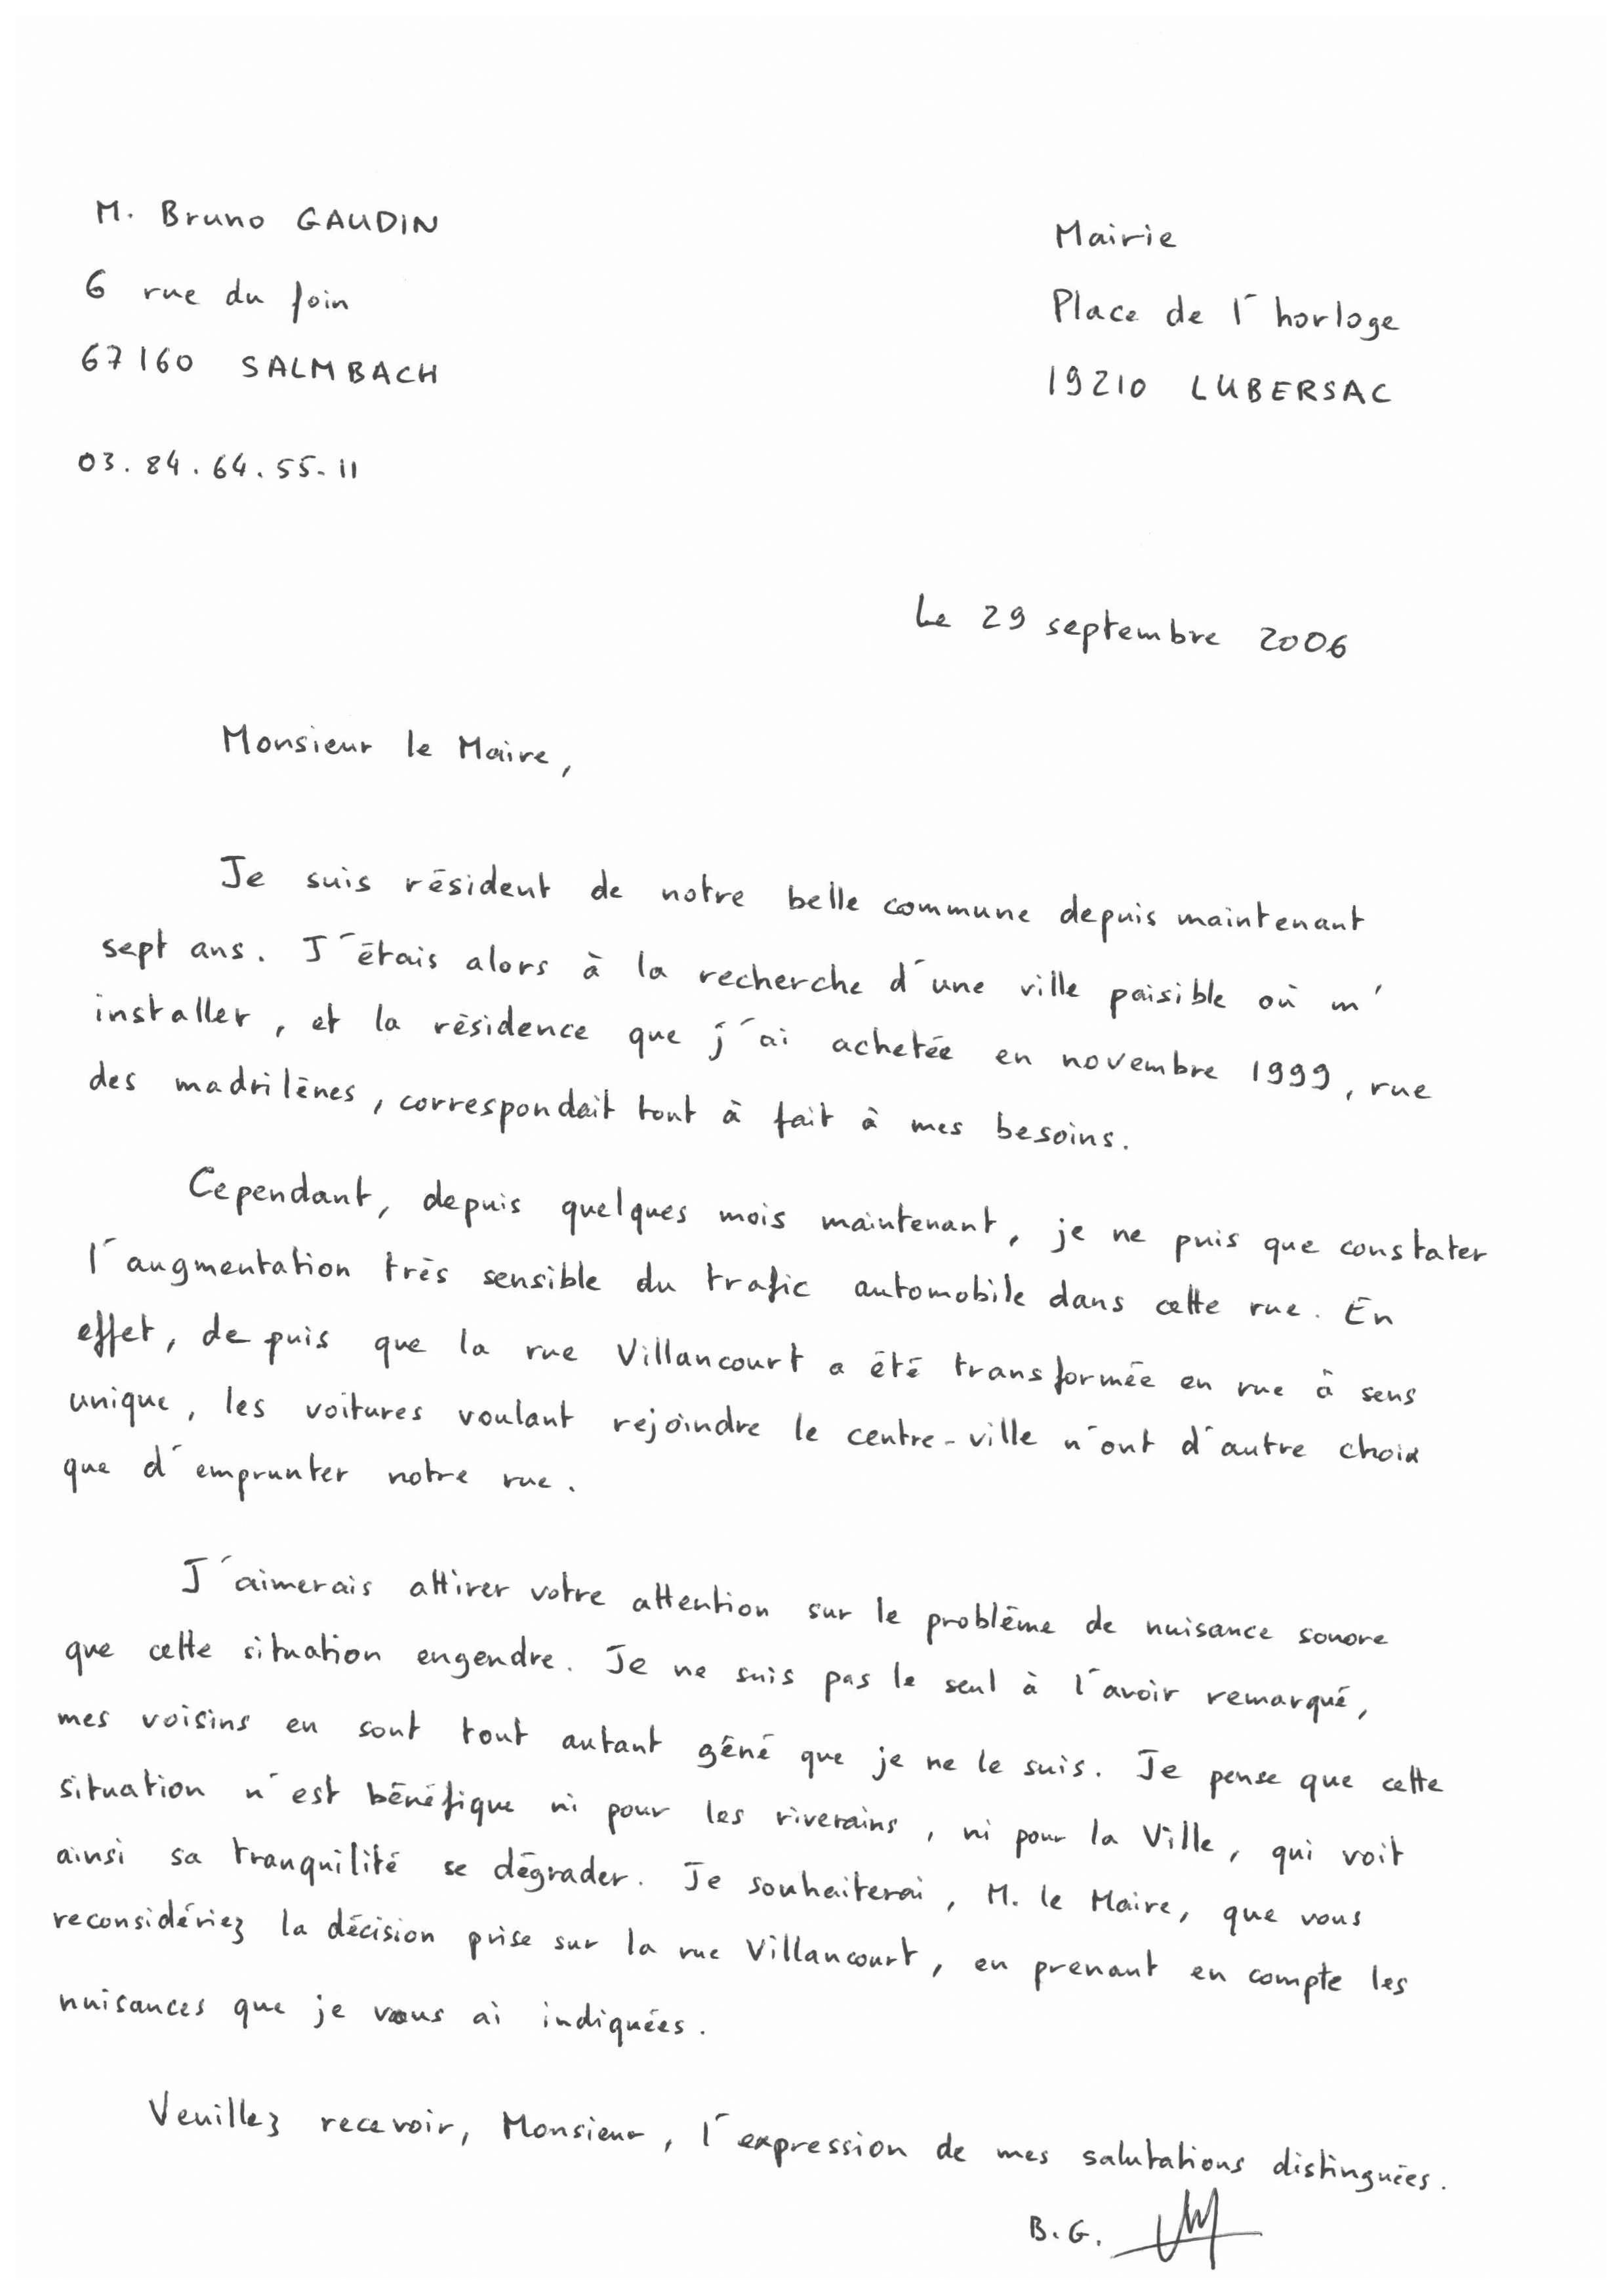 M. Bruno GAUDIN
6 rue du foin
67160 SALMBACH
03.84.64.55-11
Mairie
Place de l'horloge
19210 LUBERSAC
Le 29 septembre 2006
Monsieur le Maire,
Je suis résident de notre belle commune depuis maintenant
sept ans. J'étais alors à la recherche d'une ville paisible où m'
installer, et la résidence que j'ai achetée en novembre 1999, rue
des madrilènes, correspondait tout à fait à mes besoins.
Cependant, depuis quelques mois maintenant, je ne puis que constater
l'augmentation très sensible du trafic automobile dans cette rue. En
effet, depuis que la rue Villancourt a été transformée en rue à sens
unique, les voitures voulant rejoindre le centre-ville n'ont d'autre choix
que d'emprunter notre rue.
J'aimerais attirer votre attention sur le problème de nuisance sonore
que cette situation engendre. Je ne suis pas le seul à l'avoir remarqué,
mes voisins en sont tout autant gêné que je ne le suis. Je pense que cette
situation n'est bénéfique ni pour les riverains, ni pour la Ville, qui voit
ainsi sa tranquilité se dégrader. Je souhaiterai, M. le Maire, que vous
reconsidériez la décision prise sur la rue Villancourt, en prenant en compte les
nuisances que je vous ai indiquées.
Veuillez recevoir, Monsieur, l'expression de mes salutations distinguées.
B.G.